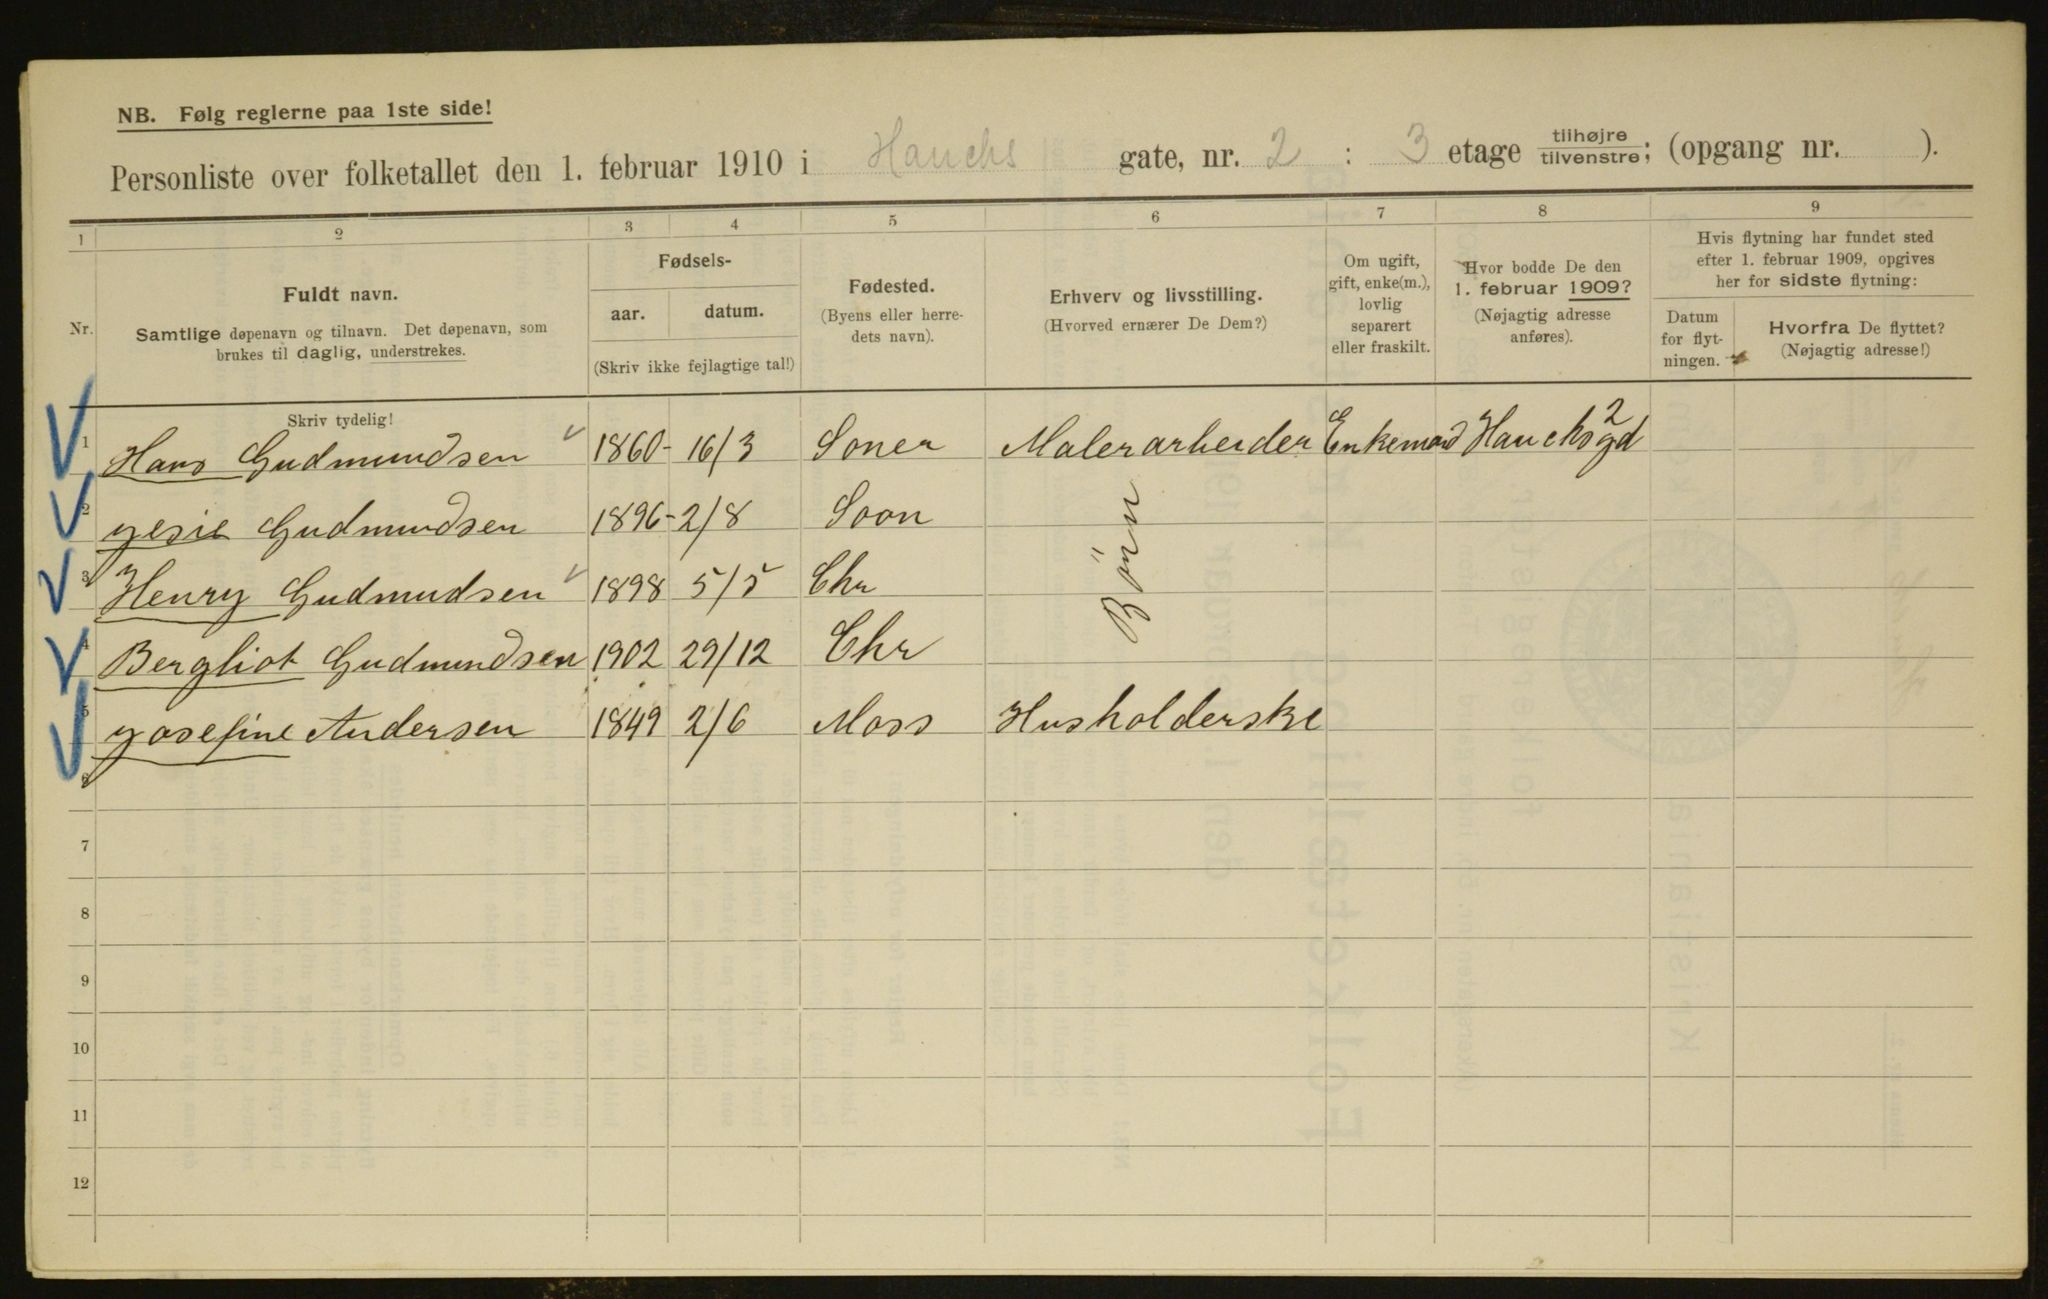 NB. Følg reglerne paa 1ste side!
Personliste over folketallet den 1. februar 1910 i Hauchs gate, nr. 2 : 3 etage tilhøjre/tilvenstre; (opgang nr. ).
1 2 3 4 5 6 7 8 9
Nr.
Fuldt navn.
Samtlige døpenavn og tilnavn. Det døpenavn, som
brukes til daglig, understrekes.
Fødsels-
aar. datum.
(Skriv ikke fejlagtige tal!)
Fødested.
(Byens eller herre-
dets navn).
Erhverv og livsstilling.
(Hvorved ernærer De Dem?)
Om ugift,
gift, enke(m.),
lovlig
separert
eller fraskilt.
Hvor bodde De den
1. februar 1909?
(Nøjagtig adresse
anføres).
Hvis flytning har fundet sted
efter 1. februar 1909, opgives
her for sidste flytning:
Datum
for flyt-
ningen.
Hvorfra De flyttet?
(Nøjagtig adresse!)
Skriv tydelig!
1 Hans Gudmundsen 1860- 16/3 Soner Malerarbeider Enkemand Hauchsgd 2
2 Gudmundsen 1896- 2/8 Soon
3 Henry Gudmudsen 1898 5/5 Chr
Börn
4 Bergliot Gudmundsen 1902 29/12 Chr
5 Yosefine Andersen 1849 2/6 Moss Husholderske
6
7
8
9
10
11
12